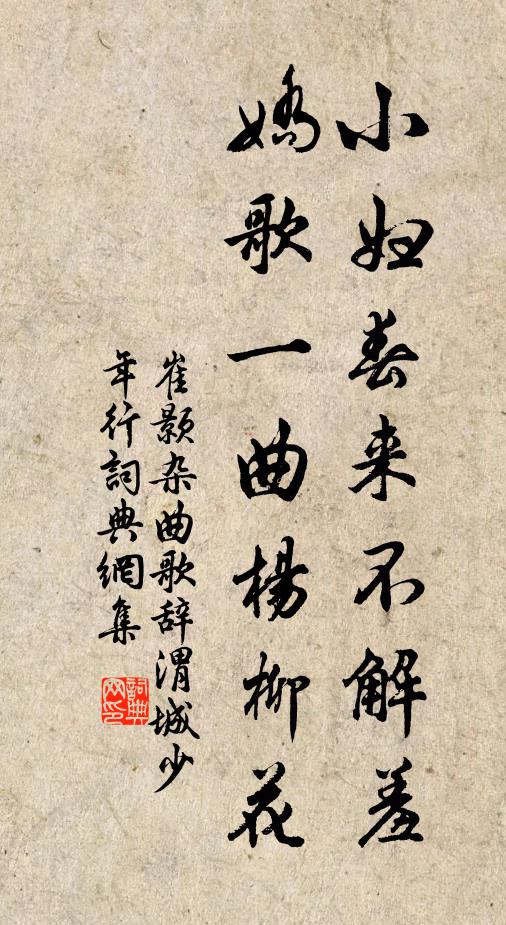 小妇春来不解羞
娇歌一曲杨柳花
崔颢杂曲歌辞渭城少
年行詞典網集
詞典网印